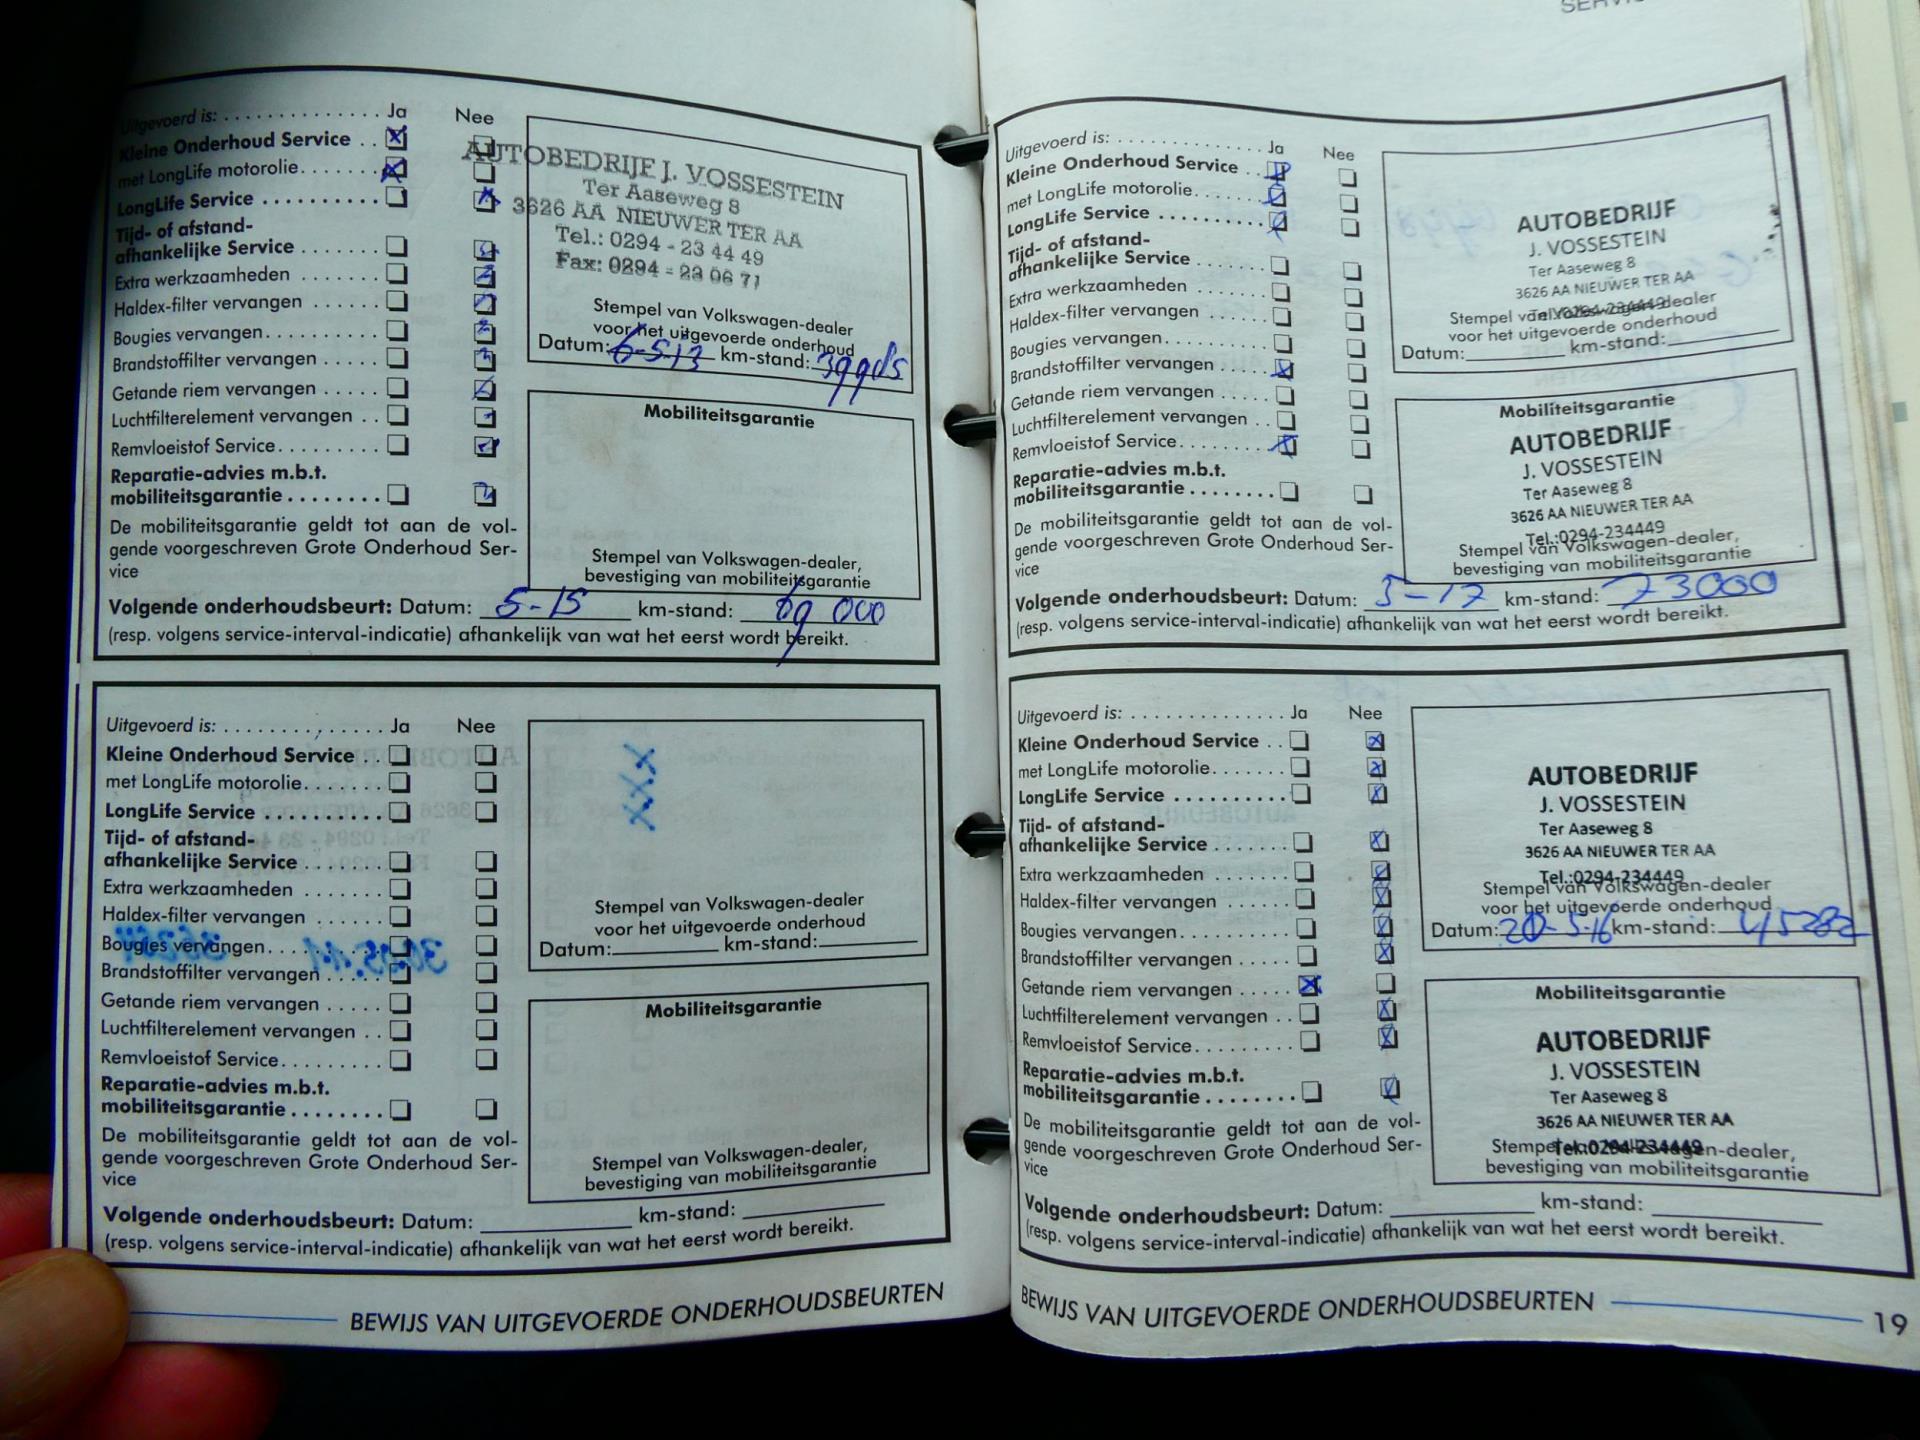 Uitgevoerd is: . . . . . . . . . . . . . . Ja Nee
Kleine Onderhoud Service . .
met LongLife motorolie. . . . . . .
LongLife Service . . . . . . . . . .
Tijd- of afstand-
afhankelijke Service . . . . . . .
Extra werkzaamheden . . . . . . .
Haldex-filter vervangen . . . . . .
Bougies vervangen. . . . . . . . . .
Brandstoffilter vervangen . . . . .
Getande riem vervangen . . . . .
Luchtfilterelement vervangen . .
Remvloeistof Service. . . . . . . . .
Reparatie-advies m.b.t.
mobiliteitsgarantie . . . . . . . .
De mobiliteitsgarantie geldt tot aan de vol-
gende voorgeschreven Grote Onderhoud Ser-
vice
AUTOBEDRIJF J. VOSSESTEIN
Ter Aaseweg 8
3626 AA NIEUWER TER AA
Tel.: 0294 - 23 44 49
Fax: 0294 - 23 06 71
Stempel van Volkswagen-dealer
voor het uitgevoerde onderhoud
Datum: 6-5-13 km-stand:
Mobiliteitsgarantie
Stempel van Volkswagen-dealer,
bevestiging van mobiliteitsgarantie
Volgende onderhoudsbeurt: Datum: 5-15 km-stand: 69 000
(resp. volgens service-interval-indicatie) afhankelijk van wat het eerst wordt bereikt.
Uitgevoerd is: . . . . . . . . . . . . . . Ja Nee
Kleine Onderhoud Service . .
met LongLife motorolie. . . . . . .
LongLife Service . . . . . . . . . .
Tijd- of afstand-
afhankelijke Service . . . . . . .
Extra werkzaamheden . . . . . . .
Haldex-filter vervangen . . . . . .
Bougies vervangen. . . . . . . . . .
Brandstoffilter vervangen . . . . .
Getande riem vervangen . . . . .
Luchtfilterelement vervangen . .
Remvloeistof Service. . . . . . . . .
Reparatie-advies m.b.t.
mobiliteitsgarantie . . . . . . . .
De mobiliteitsgarantie geldt tot aan de vol-
gende voorgeschreven Grote Onderhoud Ser-
vice
XXX
Stempel van Volkswagen-dealer
voor het uitgevoerde onderhoud
Datum: km-stand:
Mobiliteitsgarantie
Stempel van Volkswagen-dealer,
bevestiging van mobiliteitsgarantie
Volgende onderhoudsbeurt: Datum: km-stand:
(resp. volgens service-interval-indicatie) afhankelijk van wat het eerst wordt bereikt.
BEWIJS VAN UITGEVOERDE ONDERHOUDSBEURTEN
Uitgevoerd is: . . . . . . . . . . . . . . Ja Nee
Kleine Onderhoud Service . .
met LongLife motorolie. . . . . . .
LongLife Service . . . . . . . . . .
Tijd- of afstand-
afhankelijke Service . . . . . . .
Extra werkzaamheden . . . . . . .
Haldex-filter vervangen . . . . . .
Bougies vervangen. . . . . . . . . .
Brandstoffilter vervangen . . . . .
Getande riem vervangen . . . . .
Luchtfilterelement vervangen . .
Remvloeistof Service. . . . . . . . .
Reparatie-advies m.b.t.
mobiliteitsgarantie . . . . . . . .
De mobiliteitsgarantie geldt tot aan de vol-
gende voorgeschreven Grote Onderhoud Ser-
vice
AUTOBEDRIJF
J. VOSSESTEIN
Ter Aaseweg 8
3626 AA NIEUWER TER AA
Tel.:0294-234449
Stempel van Volkswagen-dealer
voor het uitgevoerde onderhoud
Datum: km-stand:
Mobiliteitsgarantie
AUTOBEDRIJF
J. VOSSESTEIN
Ter Aaseweg 8
3626 AA NIEUWER TER AA
Tel.:0294-234449
Stempel van Volkswagen-dealer,
bevestiging van mobiliteitsgarantie
Volgende onderhoudsbeurt: Datum: 5-17 km-stand: 73000
(resp. volgens service-interval-indicatie) afhankelijk van wat het eerst wordt bereikt.
Uitgevoerd is: . . . . . . . . . . . . . . Ja Nee
Kleine Onderhoud Service . .
met LongLife motorolie. . . . . . .
LongLife Service . . . . . . . . . .
Tijd- of afstand-
afhankelijke Service . . . . . . .
Extra werkzaamheden . . . . . . .
Haldex-filter vervangen . . . . . .
Bougies vervangen. . . . . . . . . .
Brandstoffilter vervangen . . . . .
Getande riem vervangen . . . . .
Luchtfilterelement vervangen . .
Remvloeistof Service. . . . . . . . .
Reparatie-advies m.b.t.
mobiliteitsgarantie . . . . . . . .
De mobiliteitsgarantie geldt tot aan de vol-
gende voorgeschreven Grote Onderhoud Ser-
vice
AUTOBEDRIJF
J. VOSSESTEIN
Ter Aaseweg 8
3626 AA NIEUWER TER AA
Tel.:0294-234449
Stempel van Volkswagen-dealer
voor het uitgevoerde onderhoud
Datum: 20-5-16 km-stand: 45282
Mobiliteitsgarantie
AUTOBEDRIJF
J. VOSSESTEIN
Ter Aaseweg 8
3626 AA NIEUWER TER AA
Tel.:0294-234449
Stempel van Volkswagen-dealer,
bevestiging van mobiliteitsgarantie
Volgende onderhoudsbeurt: Datum: km-stand:
(resp. volgens service-interval-indicatie) afhankelijk van wat het eerst wordt bereikt.
BEWIJS VAN UITGEVOERDE ONDERHOUDSBEURTEN 19